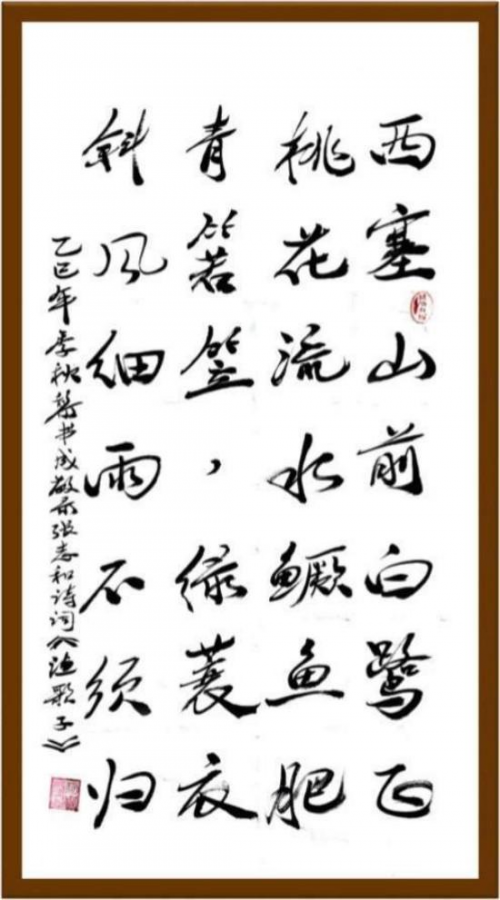 西塞山前白鹭飞
桃花流水鳜鱼肥
青箬笠，绿蓑衣
斜风细雨不须归
乙巳年季秋书成敬录张志和诗词《渔歌子》